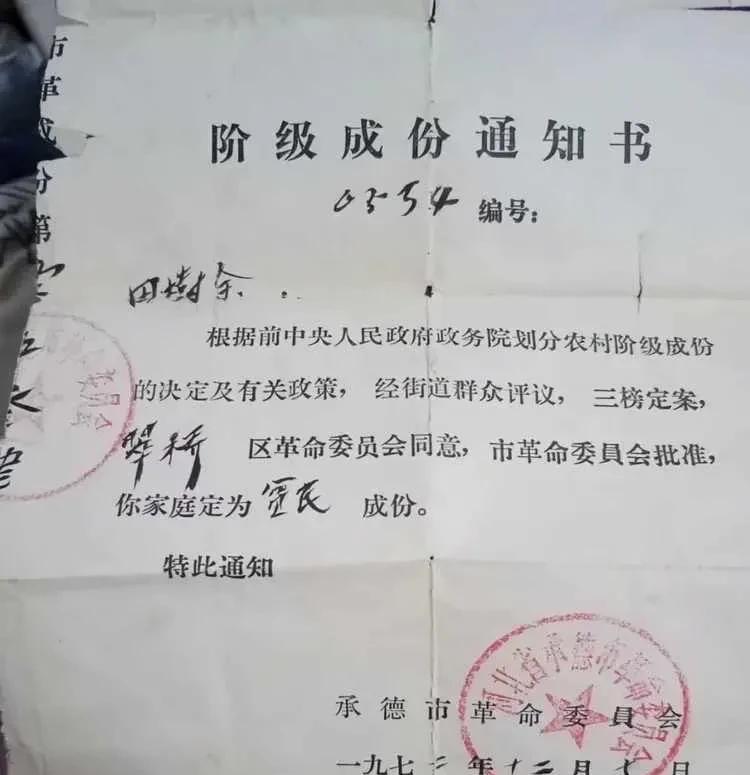 阶级成份通知书
0554 编号：
田树余.
根据前中央人民政府政务院划分农村阶级成份
的决定及有关政策，经街道群众评议，三榜定案，
翠桥 区革命委员会同意，市革命委員会批准，
你家庭定为 贫民 成份。
特此通知
河北省承德市革命委员会
承德市革命委員会
一九七三年十二月 日
市革成份第